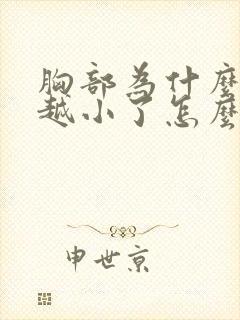 胸部為什麼
越小了怎麼
申世京